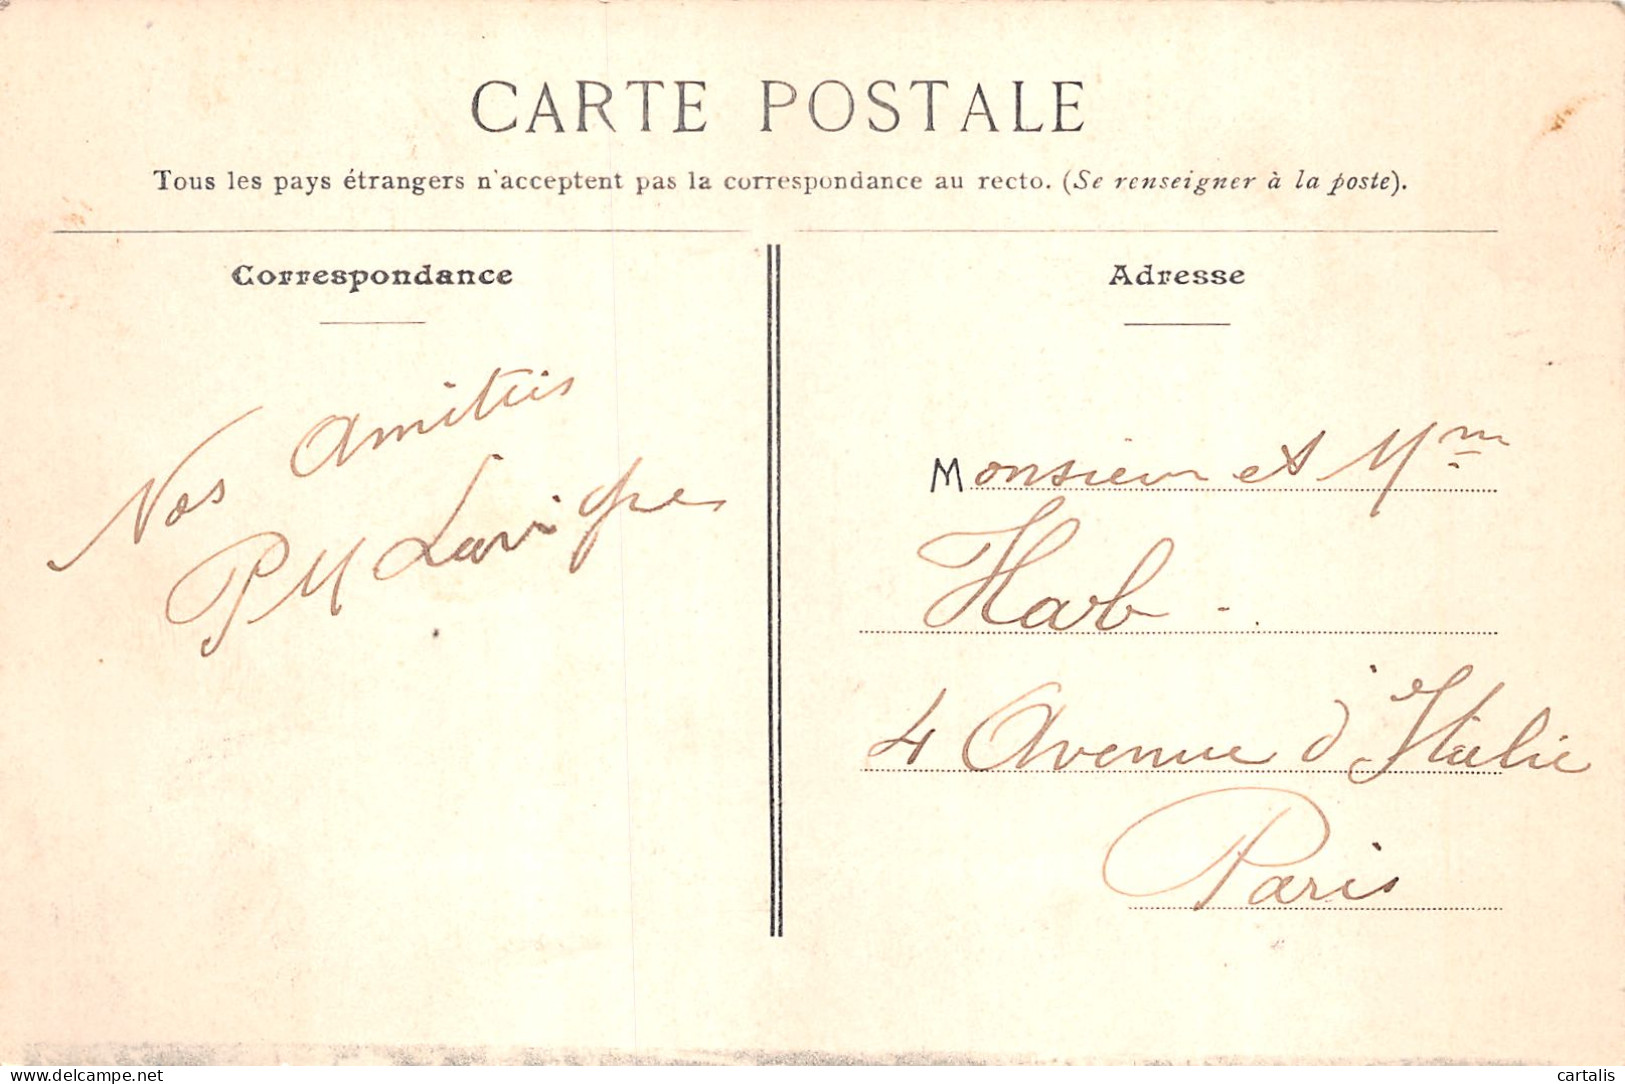 CARTE POSTALE
Tous les pays étrangers n'acceptent pas la correspondance au recto. (Se renseigner à la poste).
Correspondance
Adresse
Nos amitiés
Monsieur et Mme
Harb.
4 Avenue d'Italie
Paris
www.delcampe.net
cartalis